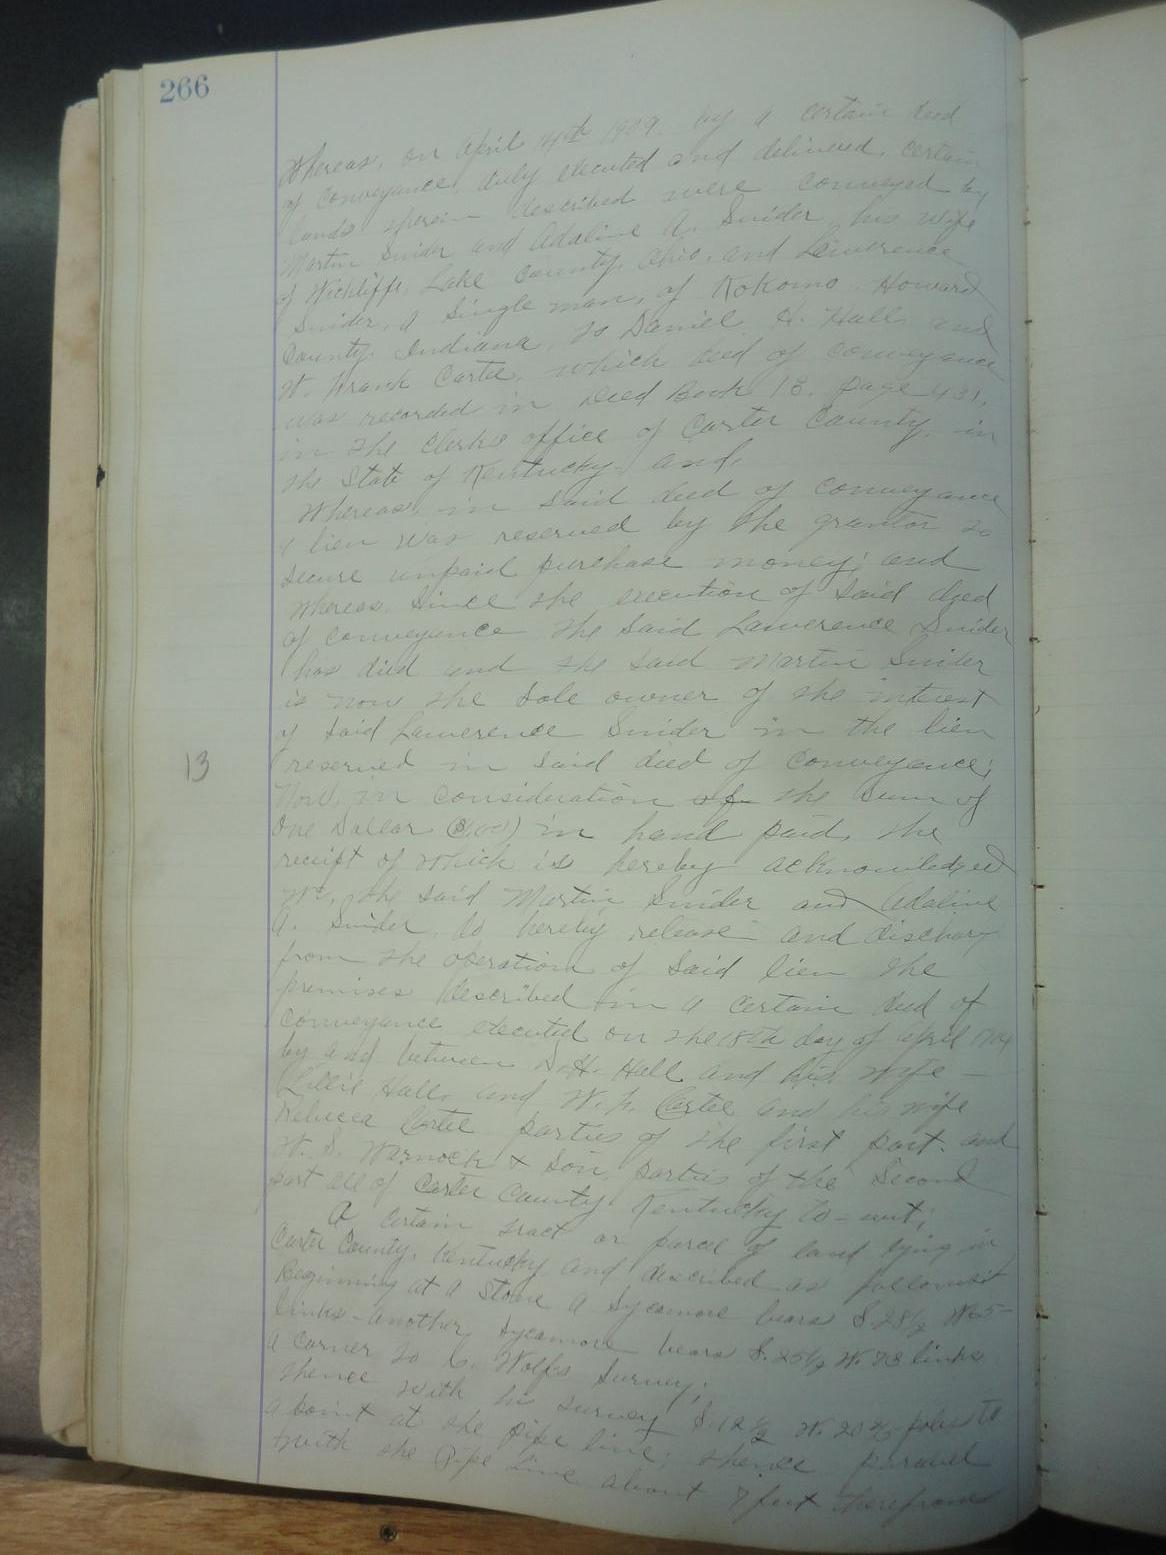 266
Whereas, on April 14th 1909. by a certain deed
of conveyance, duly executed and delivered, certain
lands therein described were conveyed by
Martin Snider and Adaline A. Snider, his wife
of Wickliffe, Lake County, Ohio, and Lawerence
Snider, a single man, of Kokomo, Howard
County, Indiana, to Daniel H. Hall and
W. Frank Cartee, which deed of conveyance
was recorded in Deed Book 18. page 431,
in the Clerks office of Carter County, in
the State of Kentucky, and,
Whereas, in said deed of conveyance
a lien was reserved by the grantor to
secure unpaid purchase money; and
Whereas, since the execution of said deed
of conveyance the said Lawerence Snider
has died and the said Martin Snider
is now the sole owner of the interest
of said Lawerence Snider in the lien
reserved in said deed of conveyance;
13
Now, in consideration of the sum of
One Dollar ($1.00) in hand paid, the
receipt of which is hereby acknowledged
we, the said Martin Snider and Adaline
A. Snider, do hereby release and discharg
from the operation of said lien the
premises described in a certain deed of
conveyance executed on the 18th day of April
by and between D.H. Hall and his wife -
Lillie Hall, and W. F. Cartee and his wife
Rebecca Cartee parties of the first part. and
W. S. Warnock & Son, parties of the second
part all of Carter County Kentucky to-wit;
A certain tract or parcel of land lying in
Carter County, Kentucky and described as follows:
Beginning at a stone a Sycamore bears S. 28½ W.
links - another Sycamore bears S. 25½ W. 73 links
a corner to Wolfs Survey;
thence with his survey S. 12½ W. 20 poles to
a point at the pipe line; thence paravel
with the Pipe Line about 7 feet therefrom